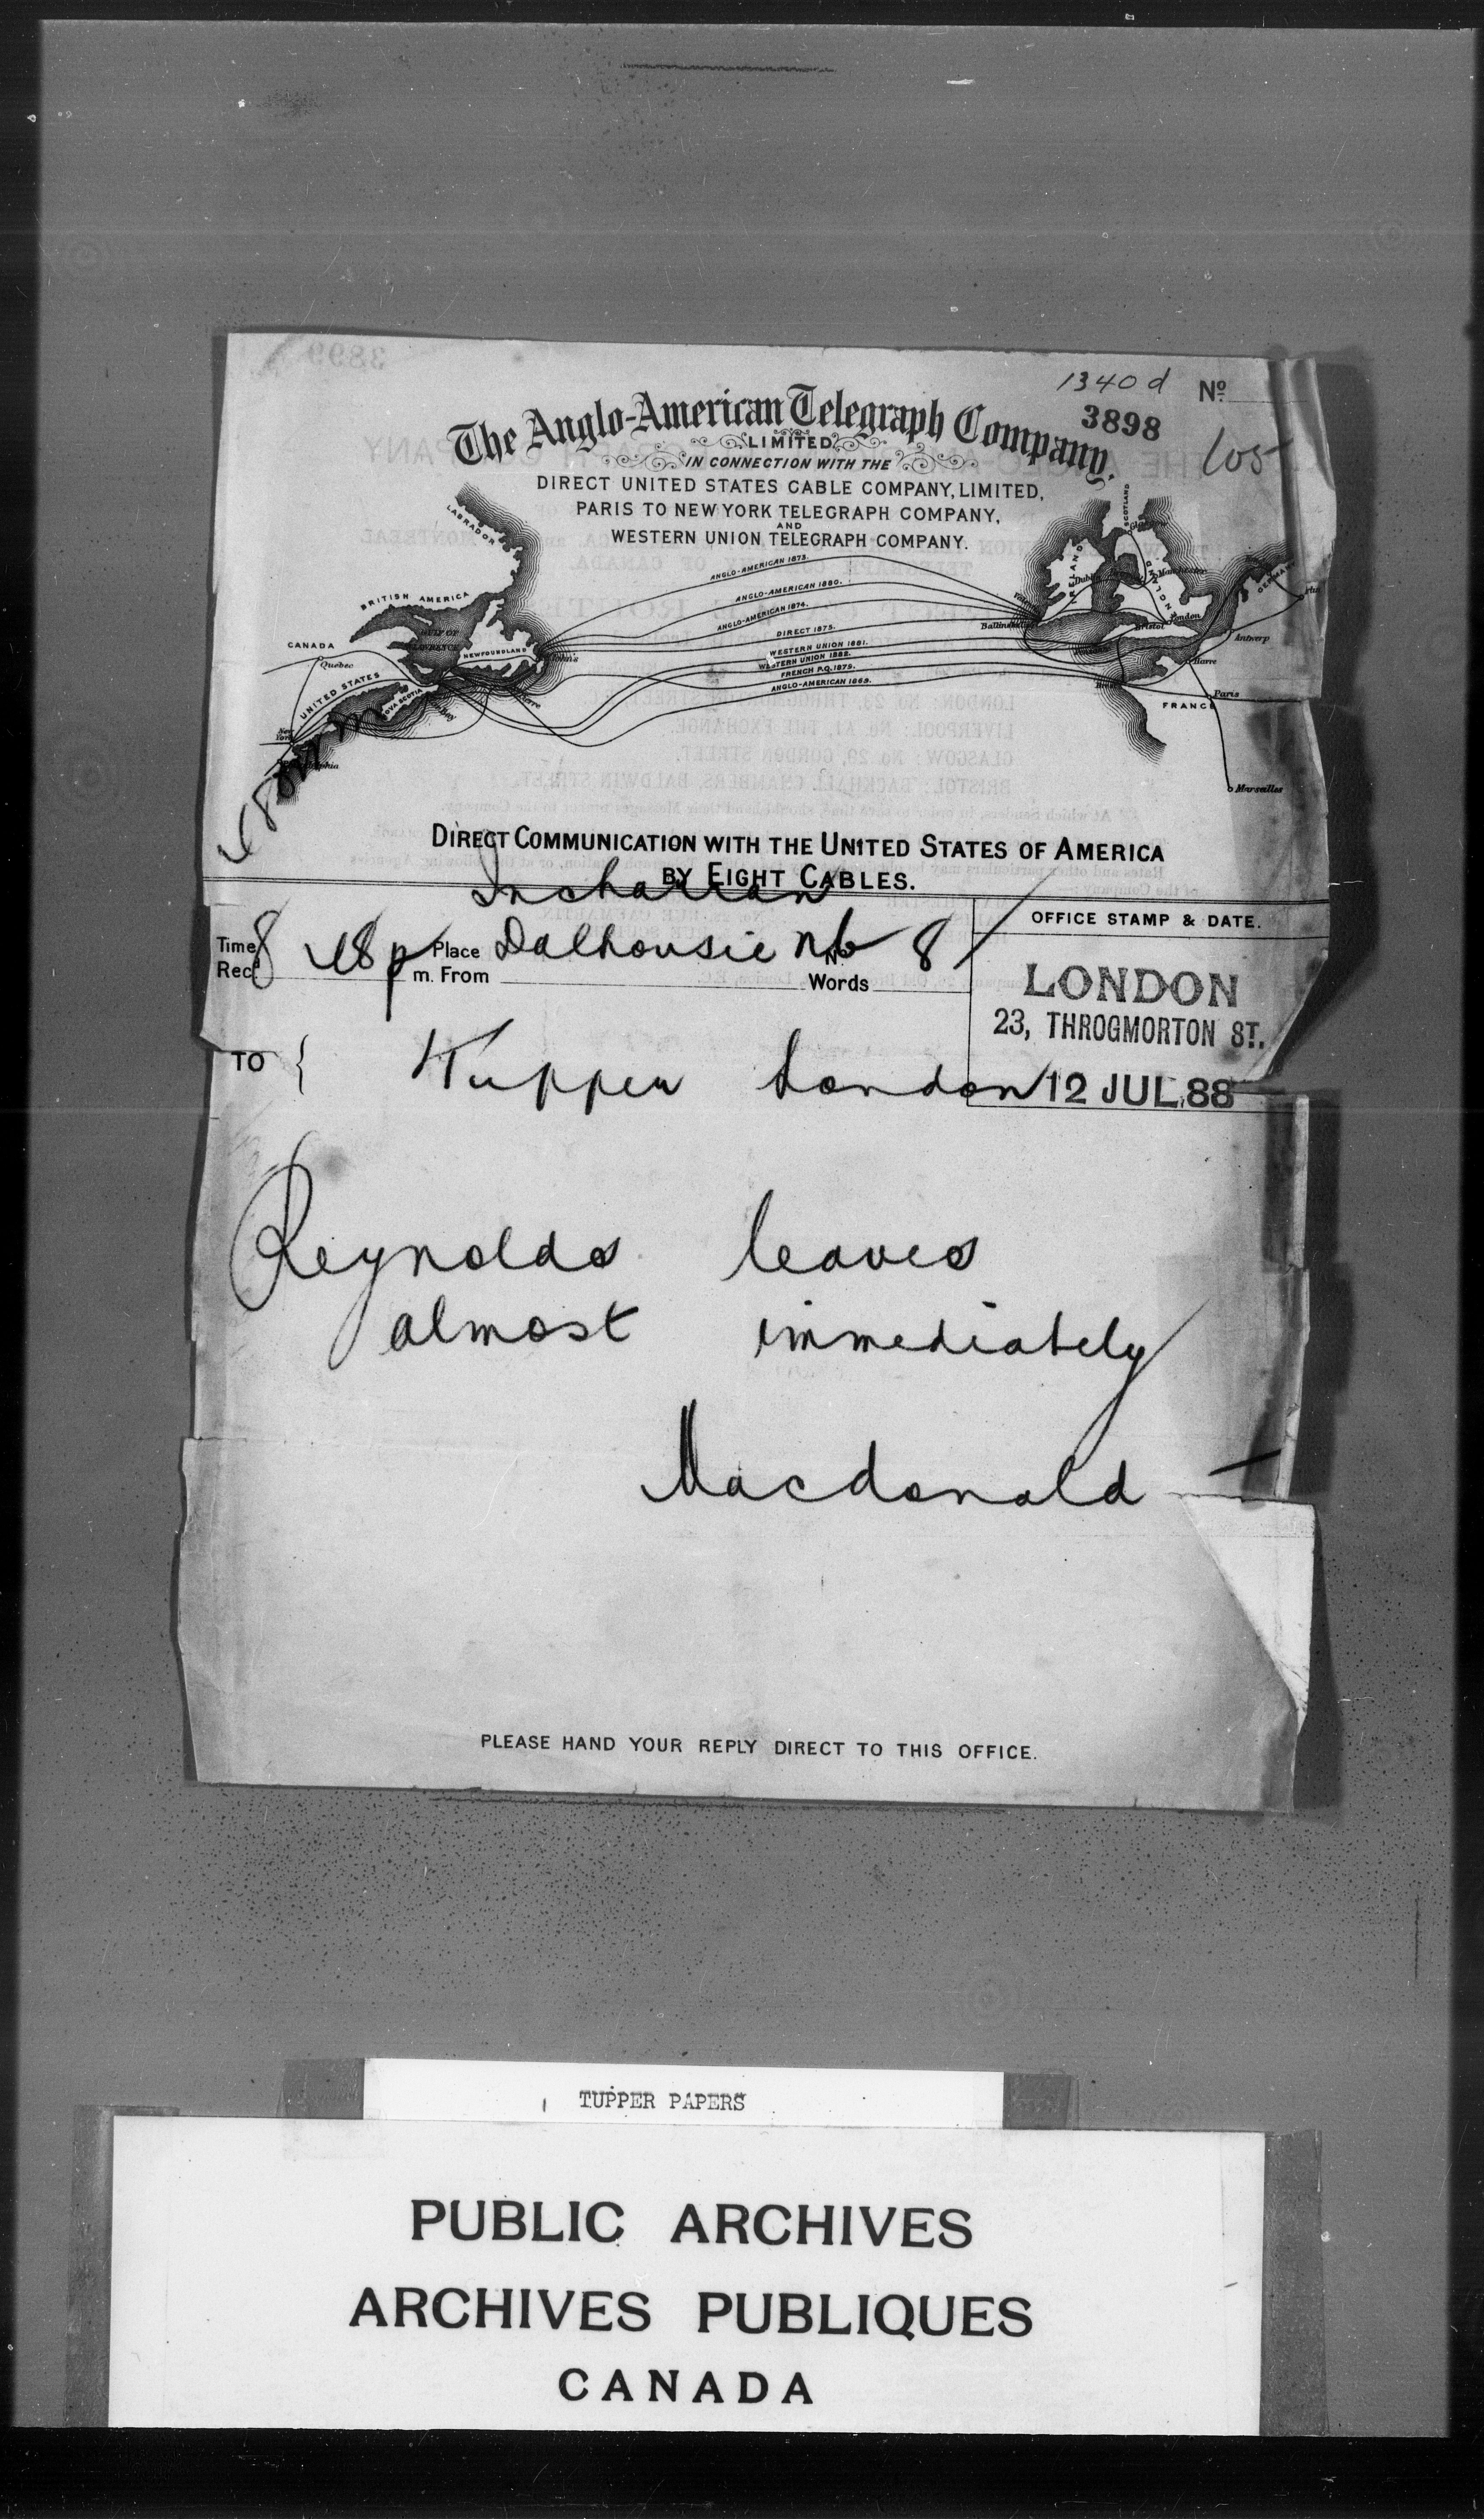 1340 d Nº
3898
The Anglo-American Telegraph Company.
LIMITED
105
IN CONNECTION WITH THE
DIRECT UNITED STATES CABLE COMPANY, LIMITED,
PARIS TO NEW YORK TELEGRAPH COMPANY,
AND
WESTERN UNION TELEGRAPH COMPANY.
LABRADOR
SCOTLAND
IRELAND
GERMANY
BRITISH AMERICA
CANADA
Quebec
GULF OF
NEWFOUNDLAND
UNITED STATES
NOVA SCOTIA
New York
ANGLO-AMERICAN 1873.
ANGLO-AMERICAN 1880.
ANGLO-AMERICAN 1874.
DIRECT 1875.
WESTERN UNION 1881.
WESTERN UNION 1882.
FRENCH P.Q. 1879.
ANGLO-AMERICAN 1869.
Dublin
Manchester
Bristol
London
Antwerp
Havre
Brest
Paris
FRANCE
Marseilles
DIRECT COMMUNICATION WITH THE UNITED STATES OF AMERICA
BY EIGHT CABLES.
OFFICE STAMP & DATE.
Time Recd 8 48 p m. Place From Dalhousie Nb Words 8
LONDON
23, THROGMORTON ST.
12 JUL. 88
TO { Tupper London
Reynolds leaves
almost immediately
Macdonald
PLEASE HAND YOUR REPLY DIRECT TO THIS OFFICE.
TUPPER PAPERS
PUBLIC ARCHIVES
ARCHIVES PUBLIQUES
CANADA